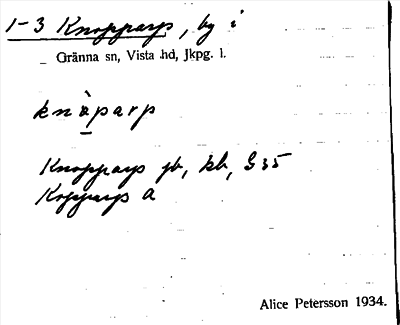 1-3 Knopparp, by i
Gränna sn, Vista hd, Jkpg. l.
knàparp
Knopparp jb, kb, G 35
Kopparp a
Alice Petersson 1934.